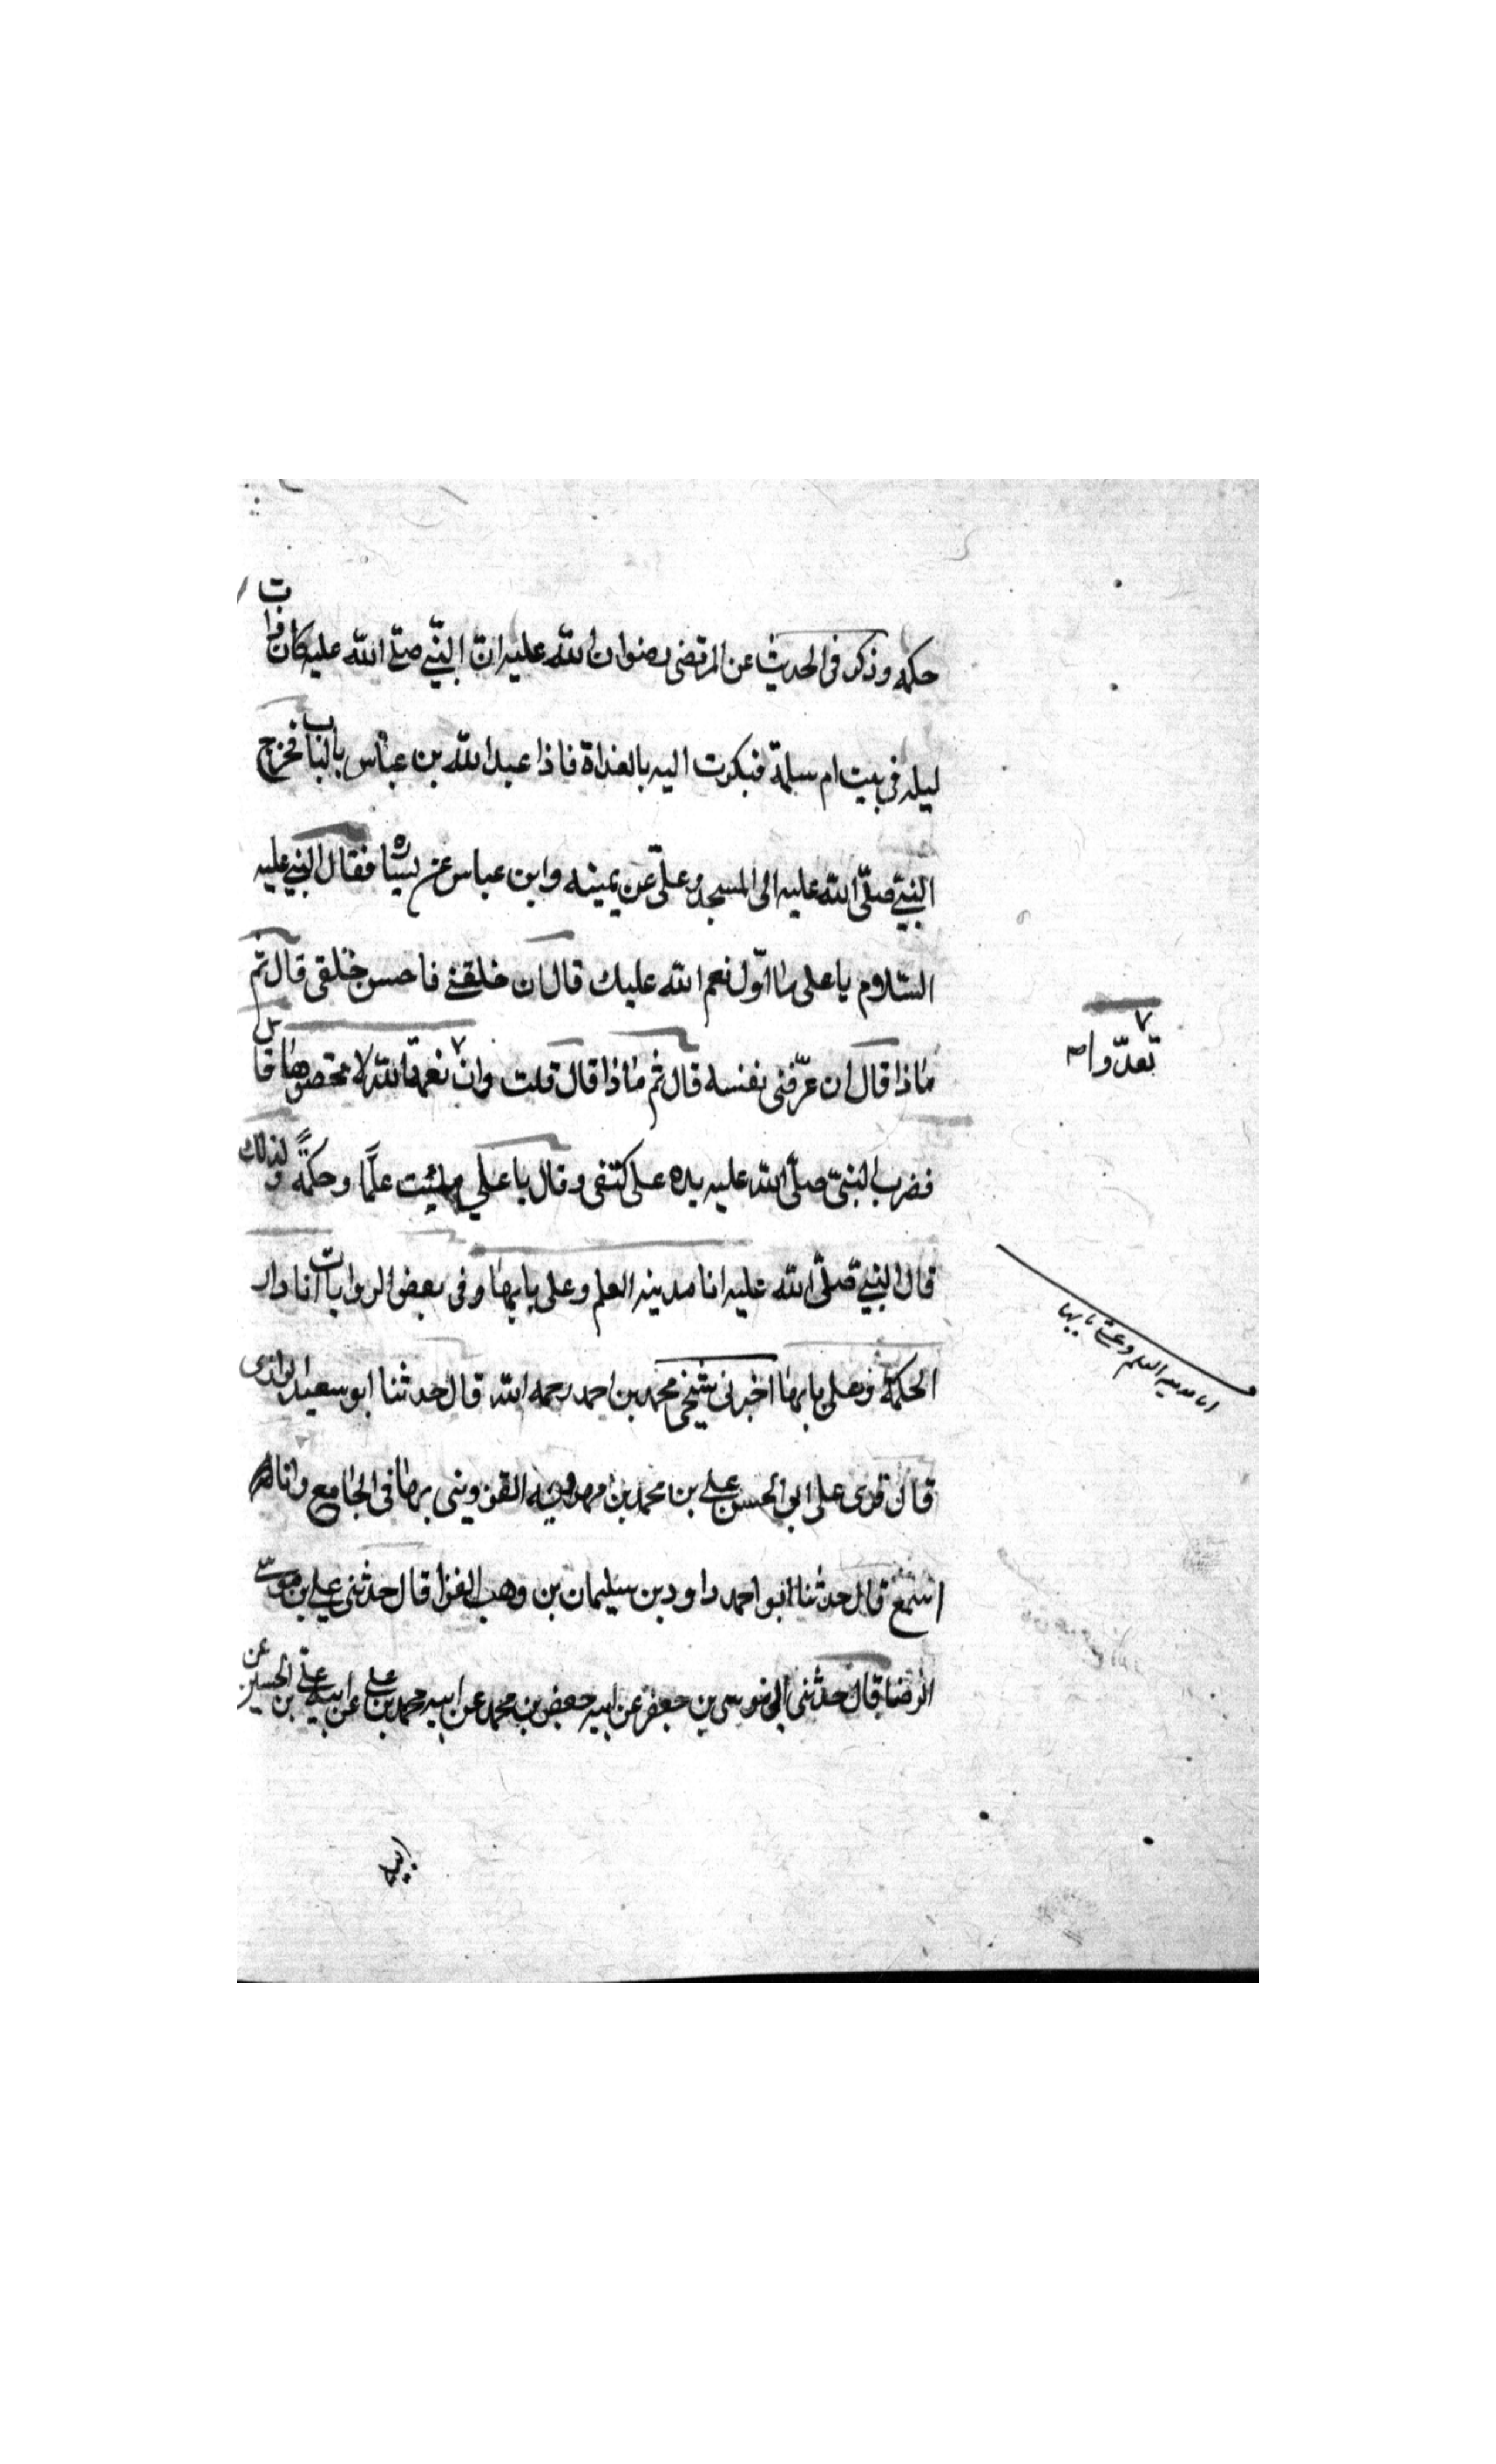 حكمه وذكر فى الحديث عن المرتضى رضوان الله عليه ان النبي صلى الله عليه كان بات
ليله فى بيت ام سلمة فبكرت اليه بالغداة فاذا عبد الله بن عباس بالباب فخرج
النبي صلى الله عليه الى المسجد وعلى عن يمينه وابن عباس عن يساره فقال النبي عليه
السلام يا على ما اول نعم الله عليك قال ان خلقنى فاحسن خلقى قال ثم
ماذا قال ان عرفنى نفسه قال ثم ماذا قال قلت وان نعمة الله لا تحصوها قال
تعدوا صح
فضرب النبى صلى الله عليه يده على كتفى وقال يا على ملئت علما وحكمة ولذلك
قال النبي صلى الله عليه انا مدينه العلم وعلى بابها وفى بعض الروايات انا دار
انا مدينه العلم وعلى بابها
الحكمة وعلى بابها اخبرنى شيخى محمد بن احمد رحمه الله قال حدثنا ابو سعيد الرازى
قال قرى على ابو الحسن على بن محمد بن مهرويه القزوينى بها فى الجامع وانا
اسمع قال حدثنا ابو احمد داود بن سليمان بن وهب الفرا قال حدثنى على بن موسى
الرضا قال حدثنى ابى موسى بن جعفر عن ابيه جعفر بن محمد عن ابيه محمد بن على عن ابيه على بن الحسين عن